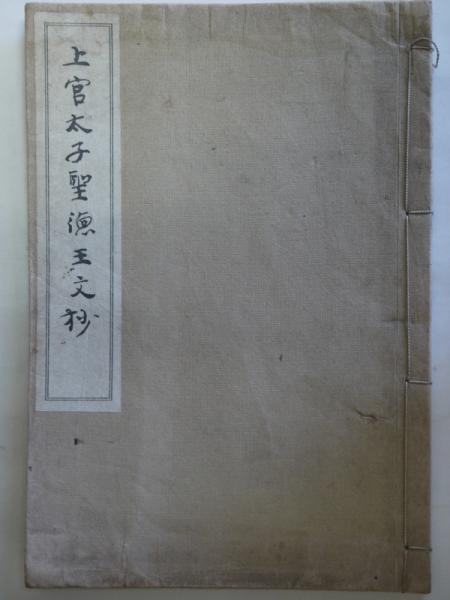 上宮太子聖徳王文抄